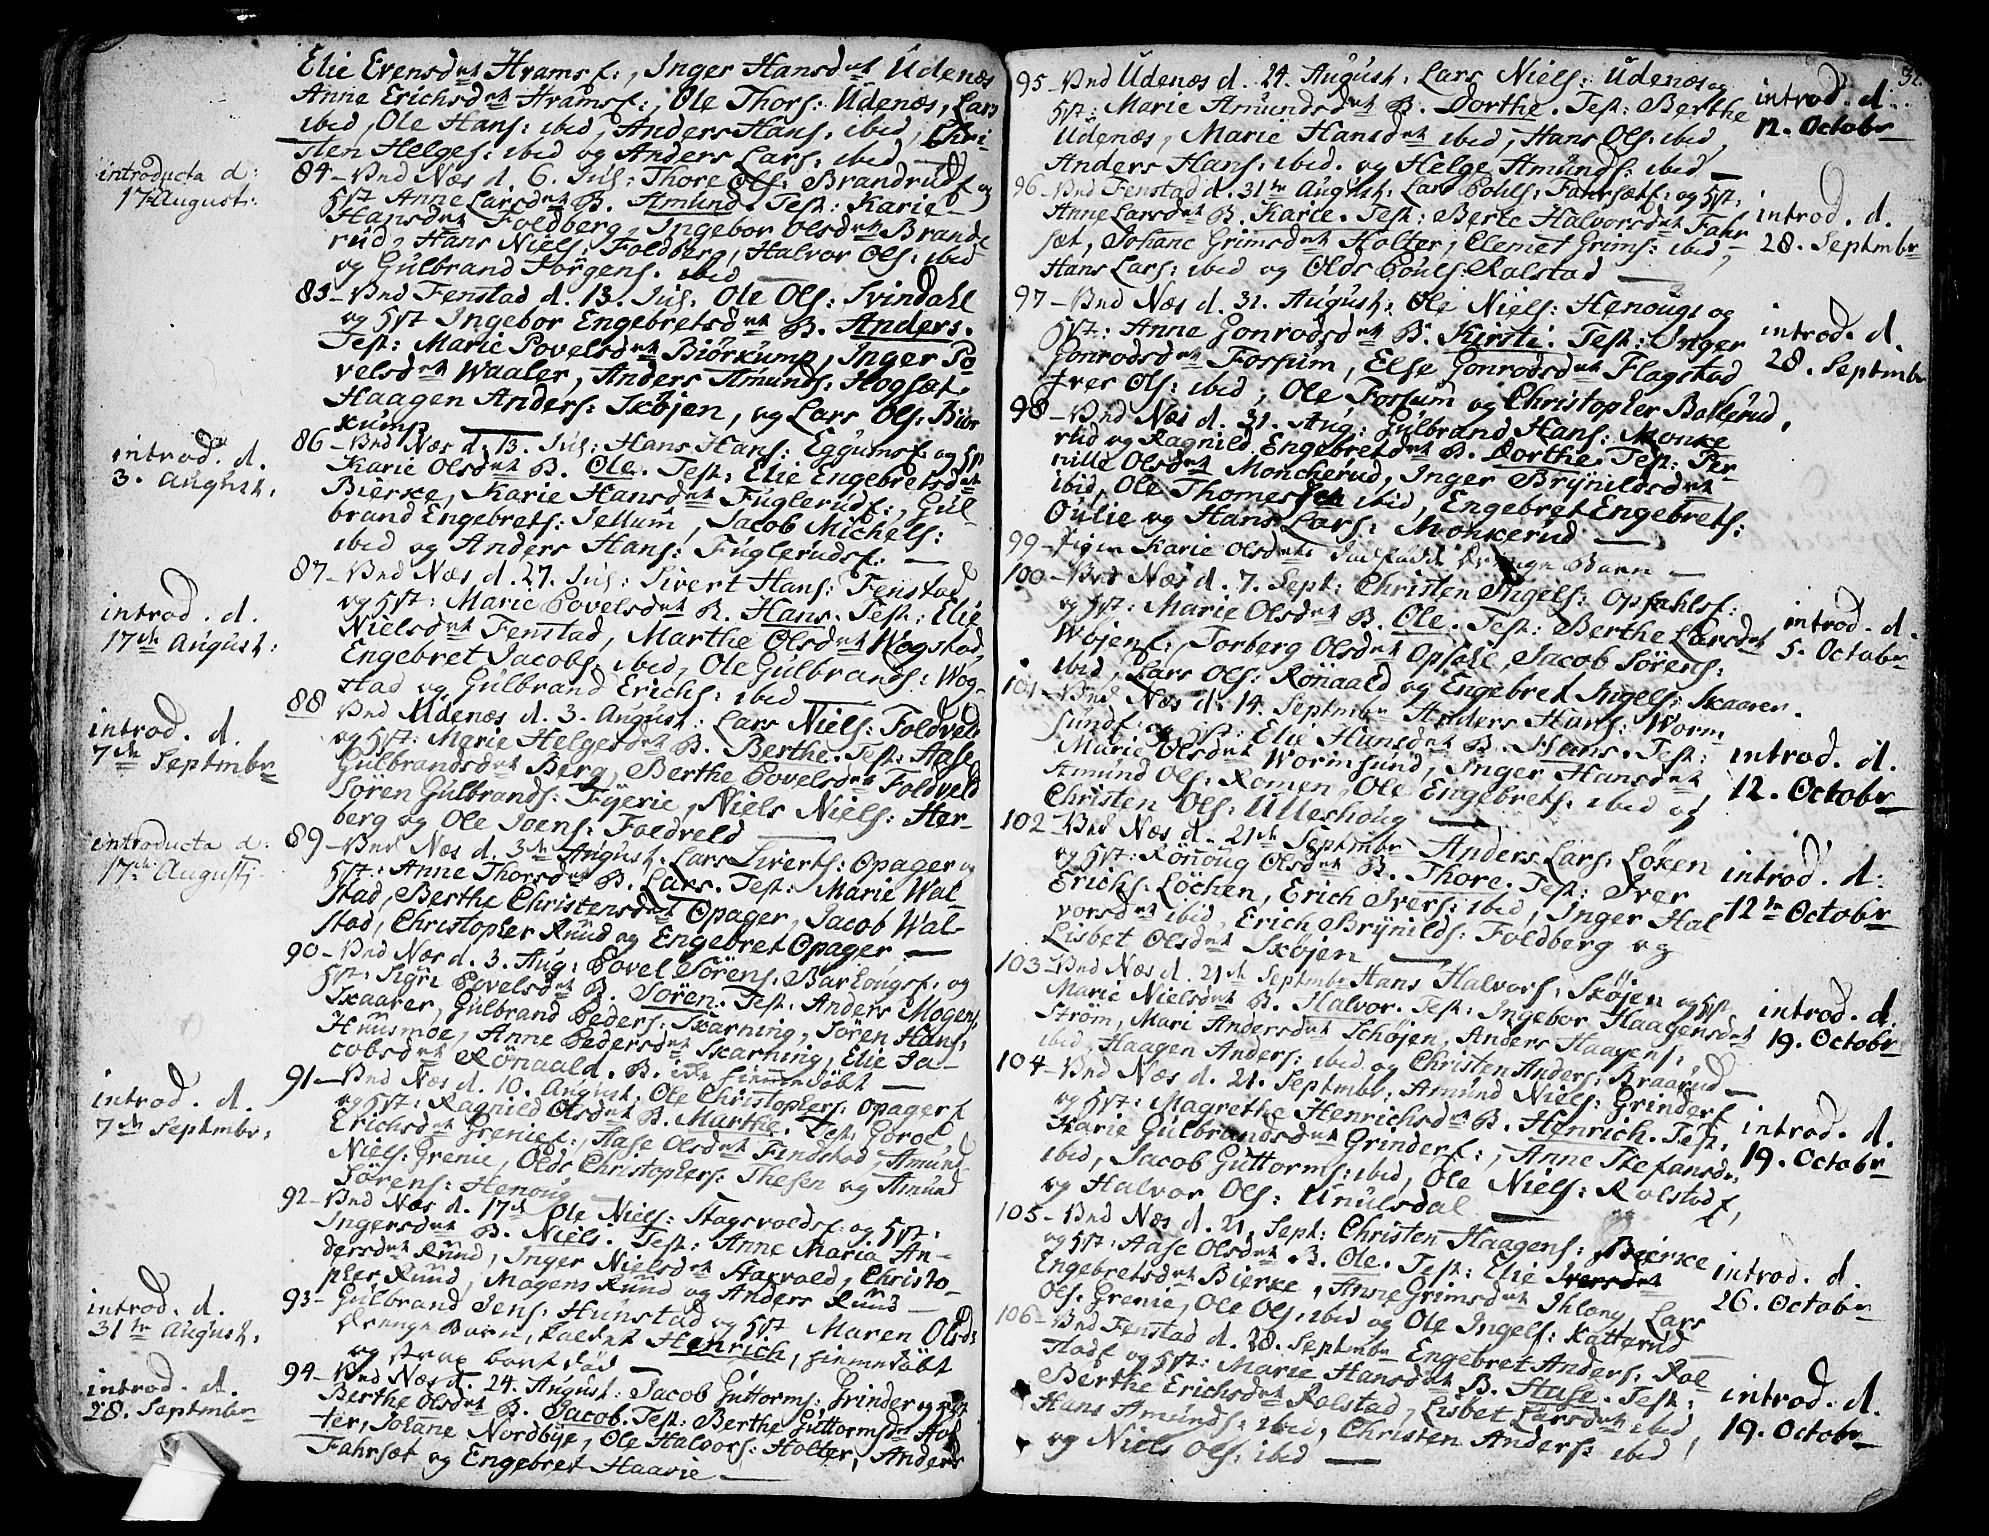 Elie Evensdtr Hramsf:, Inger Hansdtr Udenæs
Anne Erichsdtr Hramsf:, Ole Thors: Udenæs, Lars
ibid, Ole Hans: ibid, Anders Hans: ibid, Chri-
sten Helges: ibid og Anders Lars: ibid —
introducta d:
17 August:
84 - Vnd Næs d. 6. Jul: Thore Ols: Brandrudf og
Hst Anne Larsdtr B. Amund. Test: Karie
Hansdtr Foldberg, Ingebor Olsdtr Brande
rud, Hans Niels: Foldberg, Halvor Ols: ibid
og Gulbrand Jørgens: ibid —
85 - Vnd Fenstad d. 13. Jul: Ole Ols: Svindahl
og Hst Ingebor Engebretsdtr B. Anders.
Test: Marie Povelsdtr Biörkump, Inger Po
velsdtr Waaler, Anders Amunds: Hogset,
Haagen Anders: Skøjen, og Lars Ols: Biör
kump —
introd. d.
3. August:
86 - Vnd Næs d. 13. Jul: Hans Hans: Eggumsf og Hst
Karie Olsdtr B. Ole. Test: Elie Engebretsdtr
Bierke, Karie Hansdtr Fuglerudf:, Gul-
brand Engebrets: Sellum, Jacob Michels:
ibid og Anders Hans: Fuglerudsf: —
introd. d.
17de August:
87 - Vnd Næs d. 27. Jul: Sivert Hans: Fenstad
og Hst: Marie Povelsdtr B. Hans. Test: Elie
Nielsdtr Fenstad, Marthe Olsdtr Wogstad,
Engebret Jacobs: ibid, Ole Gulbrands: Wog-
stad og Gulbrand Erichs: ibid —
introd. d.
7de Septmbr
88 Vnd Udenæs d. 3. August: Lars Niels: Foldveld
og Hst: Marie Helgesdtr B. Berthe. Test: Aase
Gulbrandsdtr Berg, Berthe Povelsdtr Foldveld
Sören Gulbrands: Fyerie, Niels Niels: Her-
berg og Ole Joens: Foldveld —
introducta d:
17de Augusti
89 - Vnd Næs d. 3de August: Lars Siverts: Opager og
Hst: Anne Thorsdtr B. Lars. Test: Marie Wal-
stad, Berthe Christensdtr Opager, Jacob Wal-
stad, Christopher Ruud og Engebret Opager —
90 - Vnd Næs d. 3. Aug: Povel Sörens: Barhougsf: og
Hst: Sigri Povelsdtr B. Sören. Test: Anders Mogens:
Skaarer, Gulbrand Peders: Skarning, Sören Hans:
Huusmoe, Anne Pedersdtr Skarning, Elie Ja-
cobsdtr Rönaald. B. hiemmedöbt —
introd. d.
7de Septmbr:
91 - Vnd Næs d. 10. August: Ole Christophers: Opagerf
og Hst: Ragnild Olsdtr B. Marthe. Test: Goroe
Erichsdtr Grenief:, Aase Olsdtr Findstad, Amund
Niels: Grenie, Olds Christophers: Thesen og Amund
Sörens: Henoug —
92 - Vnd Næs d. 17de Ole Niels: Stagsvoldsf: og Hst:
Ingersdtr B. Niels. Test: Anne Maria An-
dersdtr Ruud, Inger Nielsdtr Starvald, Christo-
pher Ruud, Magens Ruud og Anders Ruud —
introd. d.
31te August:
93 - Gulbrand Jens: Hunstad og Hst Maren Olsd:
Drenge Barn, kaldet Henrich, hiemmedöbt
og strax bort död —
introd. d.
28. Septmbr
94 - Vnd Næs d. 24. August: Jacob Guttorms: Grinder og Hst
Berthe Olsdtr B. Jacob. Test: Berthe Guttormsdtr Hol
ter, Johane Nordbye, Ole Halvors: Holter, Anders
Fahrsæt og Engebret Haavie —
95 - Vnd Udenæs d. 24. August: Lars Niels: Udenæs og
Hst: Marie Amundsdtr B. Dorthe. Test: Berthe
Udenæs, Marie Hansdtr ibid, Hans Ols: ibid,
Anders Hans: ibid. og Helge Amunds: ibid —
introd. d.
12. Octobr
96 - Vnd Fenstad d. 31te August: Lars Pouls: Fahrsætf: og Hst:
Anne Larsdtr B. Karie. Test: Berte Halvorsdtr Fahr
sæt, Johane Grimsdtr Holter, Clemet Grims: ibid,
Hans Lars: ibid og Olds Pouls: Ralstad —
introd. d.
28. Septmbr
97 - Vnd Næs d. 31. August: Ole Niels: Henougs og
Hst: Anne Gonrodsdtr B. Kirsti. Test: Inger
Gonrodsdtr Fossum, Else Gonrodsdtr Flagstad
Iver Ols: ibid, Ole Fossum og Christopher Ballerud.
introd. d.
28. Septmbr
98 - Vnd Næs d. 31. Aug: Gulbrand Hans: Monke
rud og Ragnild Engebretsdtr B. Dorthe. Test: Per-
nille Olsdtr Moncherud, Inger Brynildsdtr
ibid, Ole Thomes ibid, Engebret Engebrets:
Oulie og Hans Lars: Monkerud —
99 - Pigen Karie Olsdtr Barn —
100 - Vnd Næs d. 7. Sept: Christen Ingels: Opsahlsf:
og Hst: Marie Olsdtr B. Ole. Test: Berthe Larsdtr
Wøjenf:, Torberg Olsdtr Opsahl, Jacob Sörens:
ibid, Lars Ols: Rönaald og Engebret Ingels: Skaarer.
introd. d.
5. Octobr
101 - Vnd Næs d. 14. Septmbr Anders Hans: Worm
sundf: og Hst: Elie Hansdtr B. Hans. Test:
Marie Olsdtr Wormsund, Inger Hansdtr,
Amund Ols: Romen, Ole Engebrets: ibid og
Christen Ols: Ulleshoug —
introd. d.
12. Octobr
102 - Vnd Næs d. 21de Septmbr Anders Lars: Løken
og Hst: Rönoug Olsdtr B. Thore. Test: Iver
Erichs: Löchen, Erich Ivers: ibid, Inger Hal
vorsdtr ibid, Erich Brynilds: Foldberg og
Lisbet Olsdtr Skøjen —
introd. d:
12te Octobr
103 - Vnd Næs d. 21de Septmbr Hans Halvors: Skøjen og Hst
Marie Nielsdtr B. Halvor. Test: Ingebor Haagensdtr
Strøm, Mari Andersdtr Schöjen, Anders Haagens:
ibid, Haagen Anders: ibid og Christen Anders: Braarud —
introd. d.
19. Octobr
104 - Vnd Næs d. 21. Septmbr: Amund Niels: Grinderf
og Hst: Magrethe Henrichsdtr B. Henrich. Test:
Karie Gulbrandsdtr Grinderf:, Anne Stefansdr:
ibid, Jacob Guttorms: ibid, Ole Niels: Rolstadf,
og Halvor Ols: Unulsdal —
introd. d.
19. Octobr
105 - Vnd Næs d. 21. Sept: Christen Haagens: Bierke
og Hst: Aase Olsdtr B. Ole. Test: Elie Iversdtr
Engebretsdtr Bierke, Anne Grimsdtr Ihlang, Lars
Ols: Grenie, Ole Ols: ibid og Ole Ingels: Katterud —
introd. d.
26. Octobr
106 - Vnd Fenstad d. 28. Septmbr Engebret Anders: Rol
stadf og Hst: Marie Hansdtr B. Aase. Test:
Berthe Erichsdtr Rolstad, Lisbet Larsdtr ibid
Hans Amunds: ibid, Christen Anders: ibid,
og Niels Ols: ibid —
introd. d.
19. Octobr